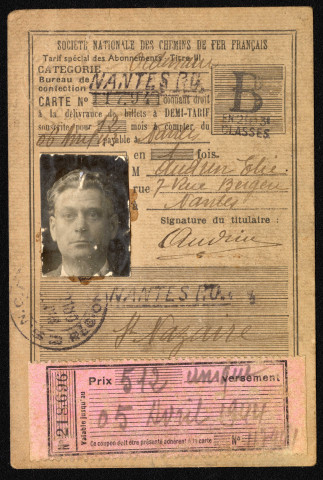 SOCIÉTÉ NATIONALE DES CHEMINS DE FER FRANÇAIS
Tarif spécial des Abonnements. Titre III
CATÉGORIE
Bureau de confection
NANTES P.O.
CARTE N° donnant droit
à la délivrance de billets à DEMI-TARIF
souscrite pour 12 mois à compter du
payable à Nantes
en fois.
B
EN 2e OU 3e
CLASSES
M Audrin Elie
rue 7 Rue
Nantes
Signature du titulaire :
Audrin
NANTES P.O.
St Nazaire
N° 218696
Valable jusqu'au
Prix 512 unique versement
05 Avril 1944
Ce coupon doit être présenté adhérent à la carte N°